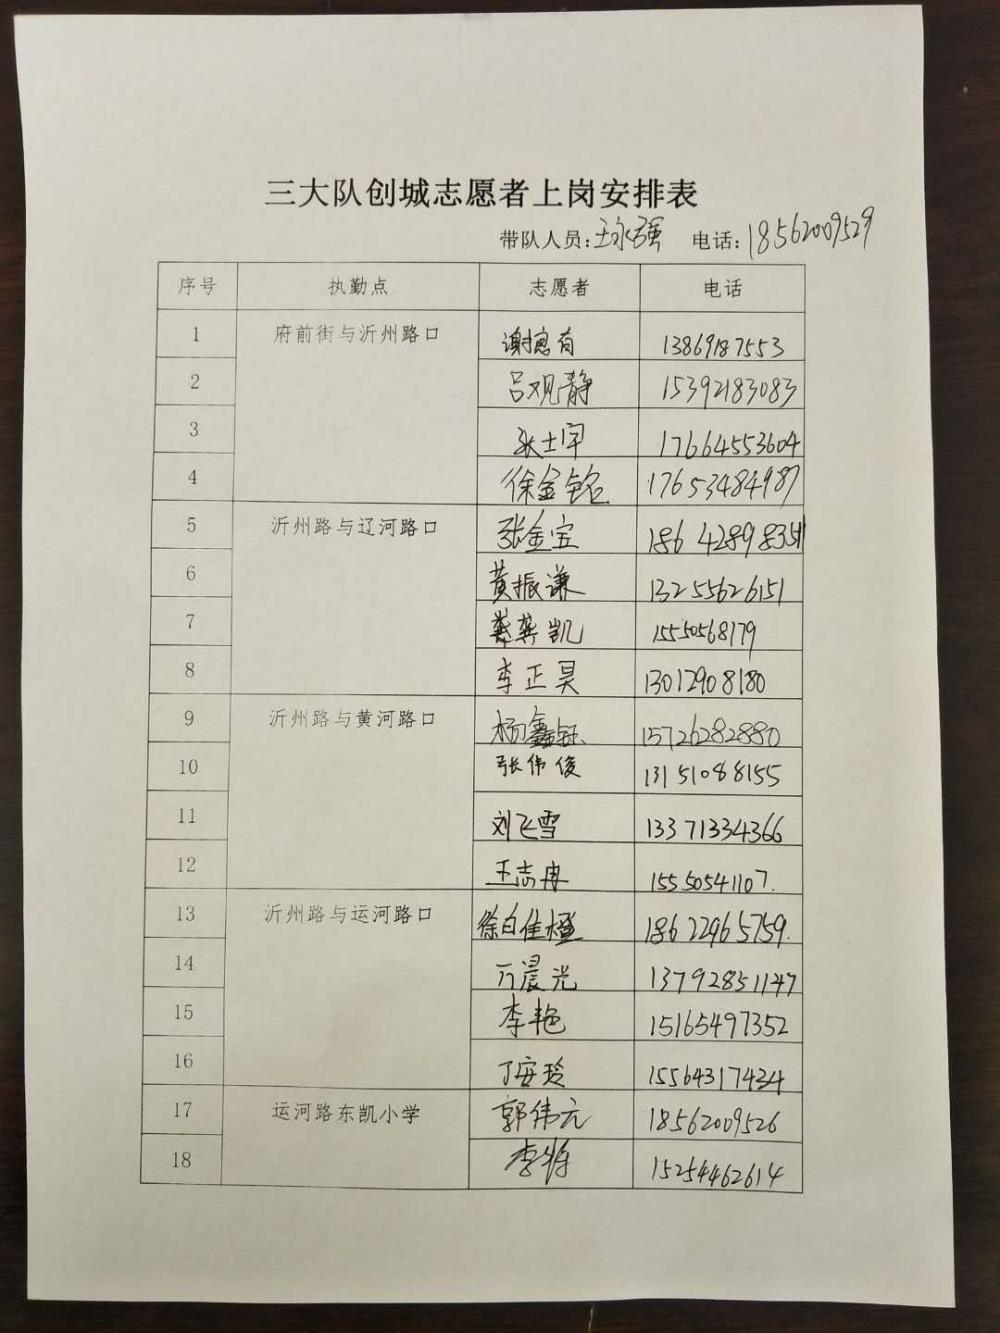 三大队创城志愿者上岗安排表
带队人员:王永强 电话:18562009529
序号 执勤点 志愿者 电话
1 府前街与沂州路口 谢忠有 13869187553
2 吕观静 15392183083
3 张士宇 17664553604
4 徐金铭 17653484987
5 沂州路与辽河路口 张金宝 186428983511
6 黄振谦 13255626151
7 龚凯 15550568179
8 李正昊 13012908180
9 沂州路与黄河路口 杨鑫钰 15726282880
10 张伟俊 13151088155
11 刘飞雪 13371334366
12 王志冉 15550541107.
13 沂州路与运河路口 徐白佳橙 18622965759.
14 亓晨光 13792851147
15 李艳 15165497352
16 丁安玲 15564317434
17 运河路东凯小学 郭伟元 18562009526
18 李 15254462614